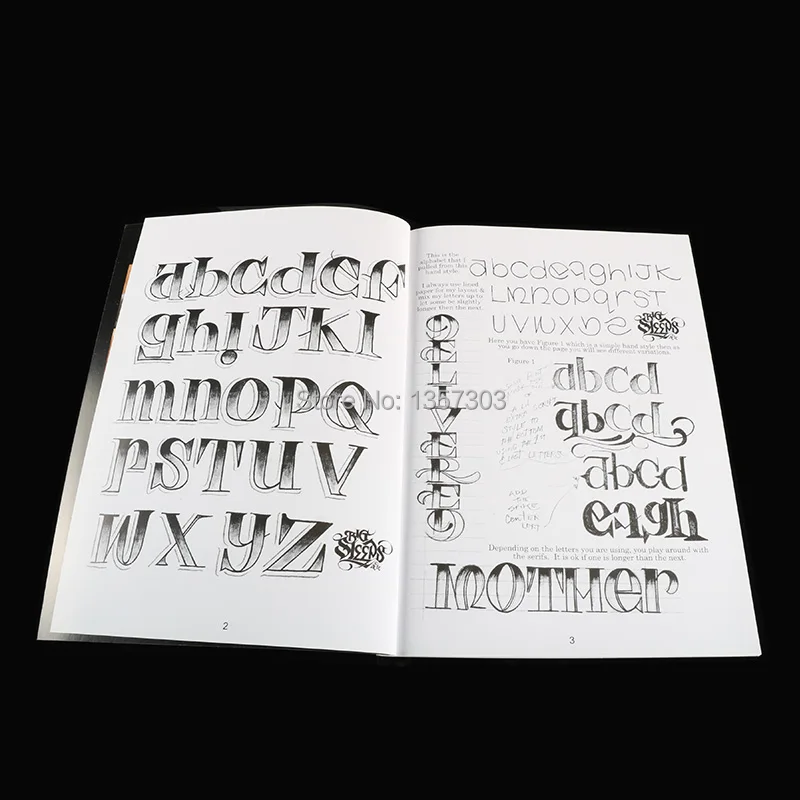 abcdef
ghiJKl
mnoPQ
rSTUV
WXYZ
BIG
SLEEPS
2
This is the
alphabet that I
pulled from this
hand style.
I always use lined
paper for my layout &
mix my letters up to
let some be slightly
longer then the next.
abcdeaghiJK
LMnopqrsT
UVWXYZ
BIG
SLEEPS
Here you have Figure 1 which is a simple hand style then as
you go down the page you will see different variations.
Figure 1
DELIVERED
abcd
abcd
abcd
eagh
STYLE TO
THE BOTTOM
LETTERS
AND
THE
CENTER
Depending on the letters you are using, you play around with
the serifs. It is ok if one is longer than the next.
MOTHer
3
Store No: 1357303